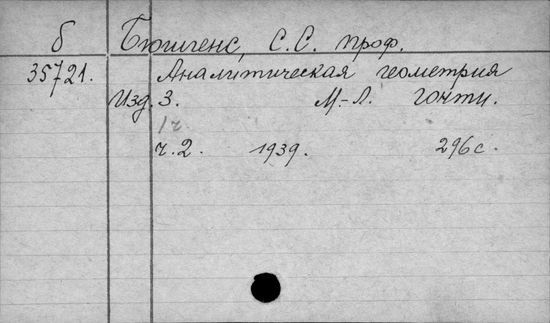 б Бюшгенс, С.С. проф.
35721. Аналитическая геометрия
Изд. 3. М.-Л. Гонти.
1 ч
ч. 2. 1939. 296 с.